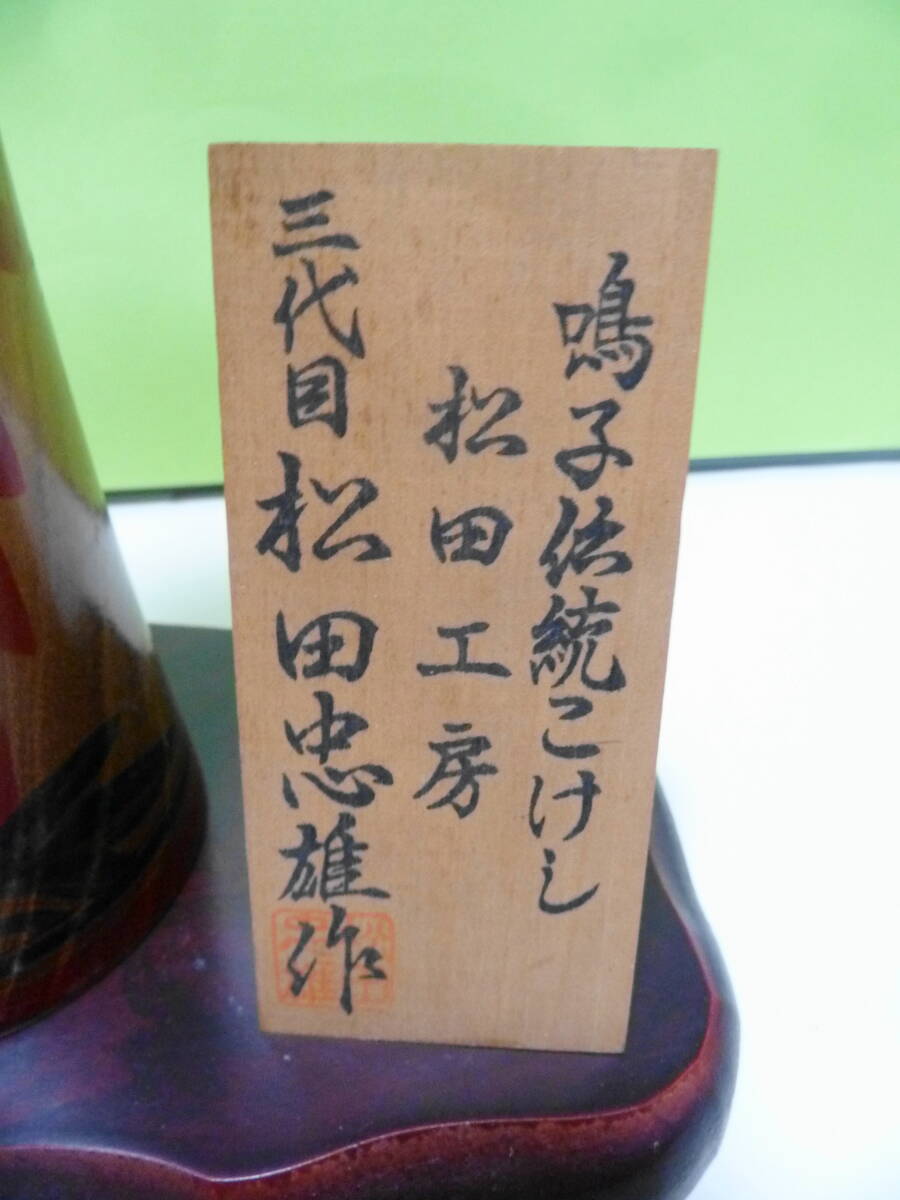 鳴子伝統こけし
松田工房
三代目松田忠雄作